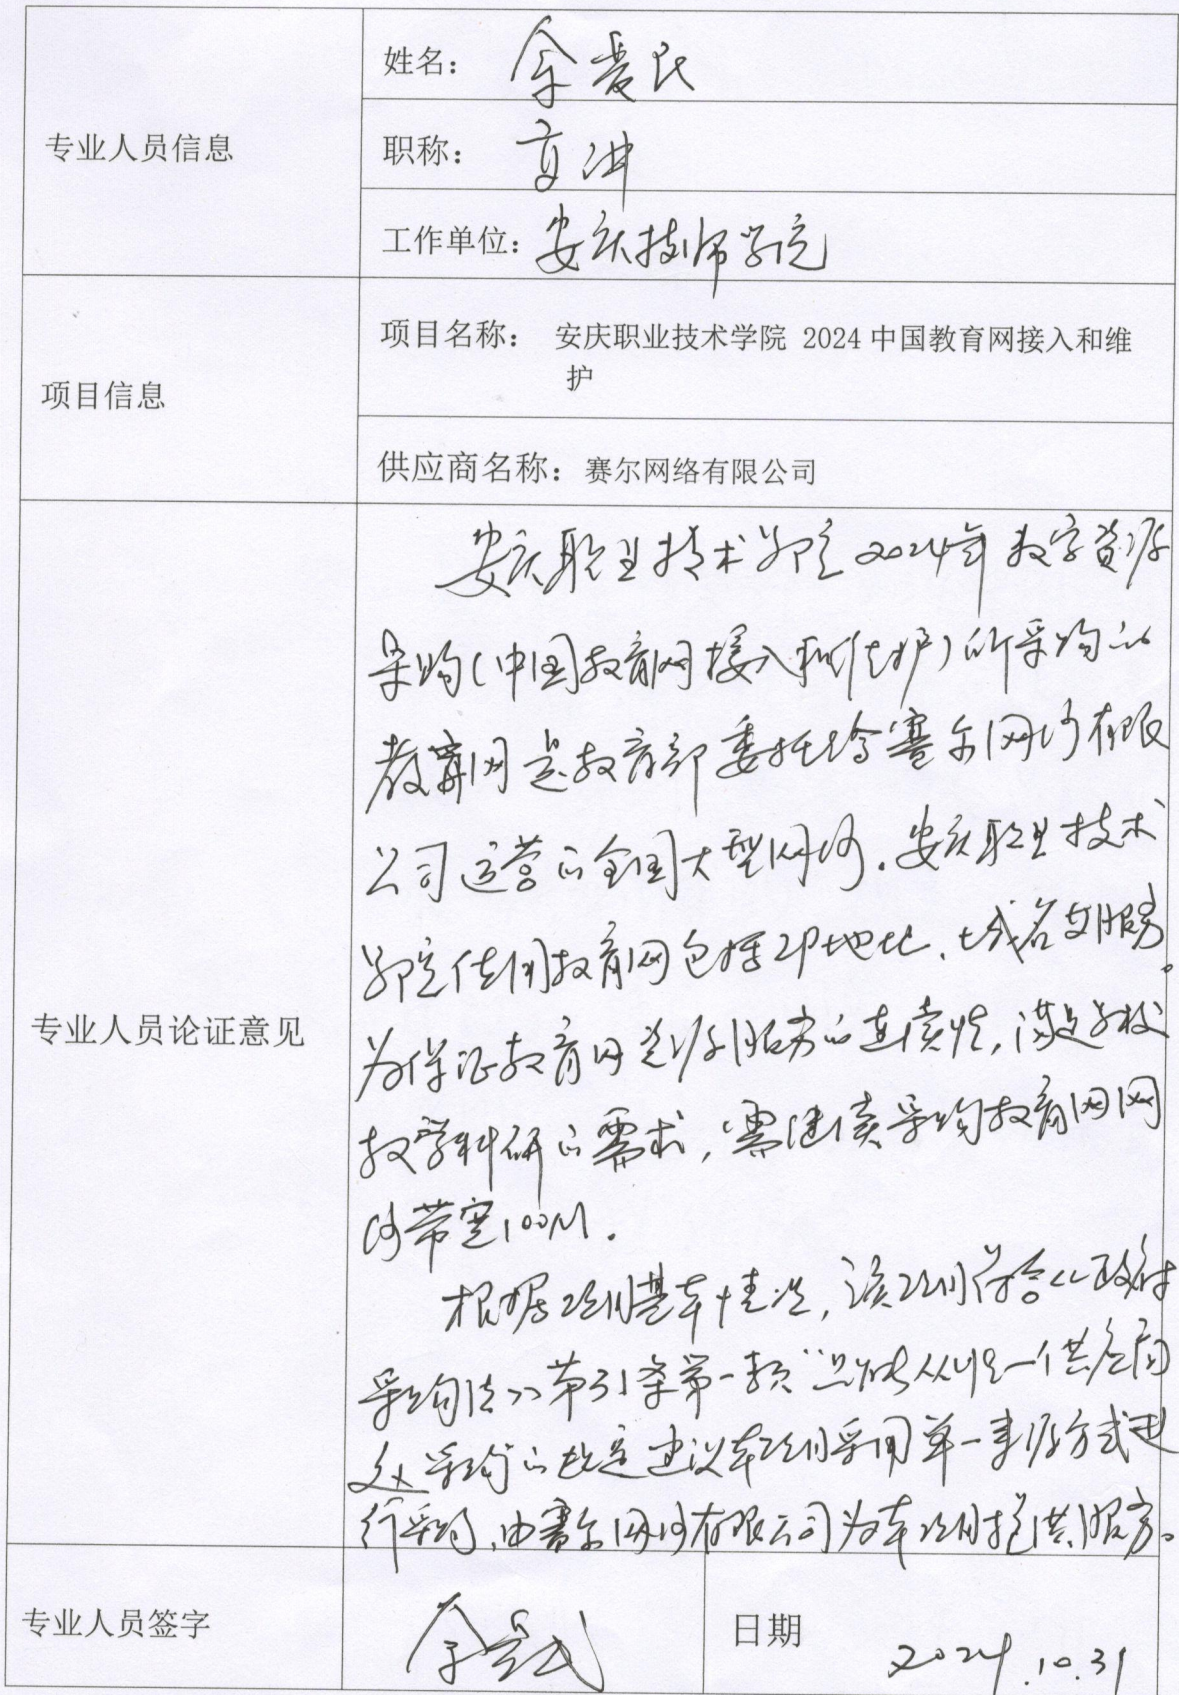 专业人员信息
姓名：余爱民
职称：高讲
工作单位：安庆技师学院
项目信息
项目名称： 安庆职业技术学院 2024 中国教育网接入和维
护
供应商名称：赛尔网络有限公司
专业人员论证意见
安庆职业技术学院2024年数字资源
采购(中国教育网接入和维护)所采购的
教育网是教育部委托给赛尔网络有限
公司运营的全国大型网络.安庆职业技术
学院使用教育网包括IP地址、域名等服务。
为保证教育网资源服务的连续性,满足学校
教学科研的需求,需继续采购教育网网
络带宽100M.
根据项目基本情况,该项目符合《政府
采购法》第31条第一款“只能从唯一供应商
处采购”的规定建议本项目采用单一来源方式进
行采购,由赛尔网络有限公司为本项目提供服务。
专业人员签字
余爱民
日期
2024.10.31